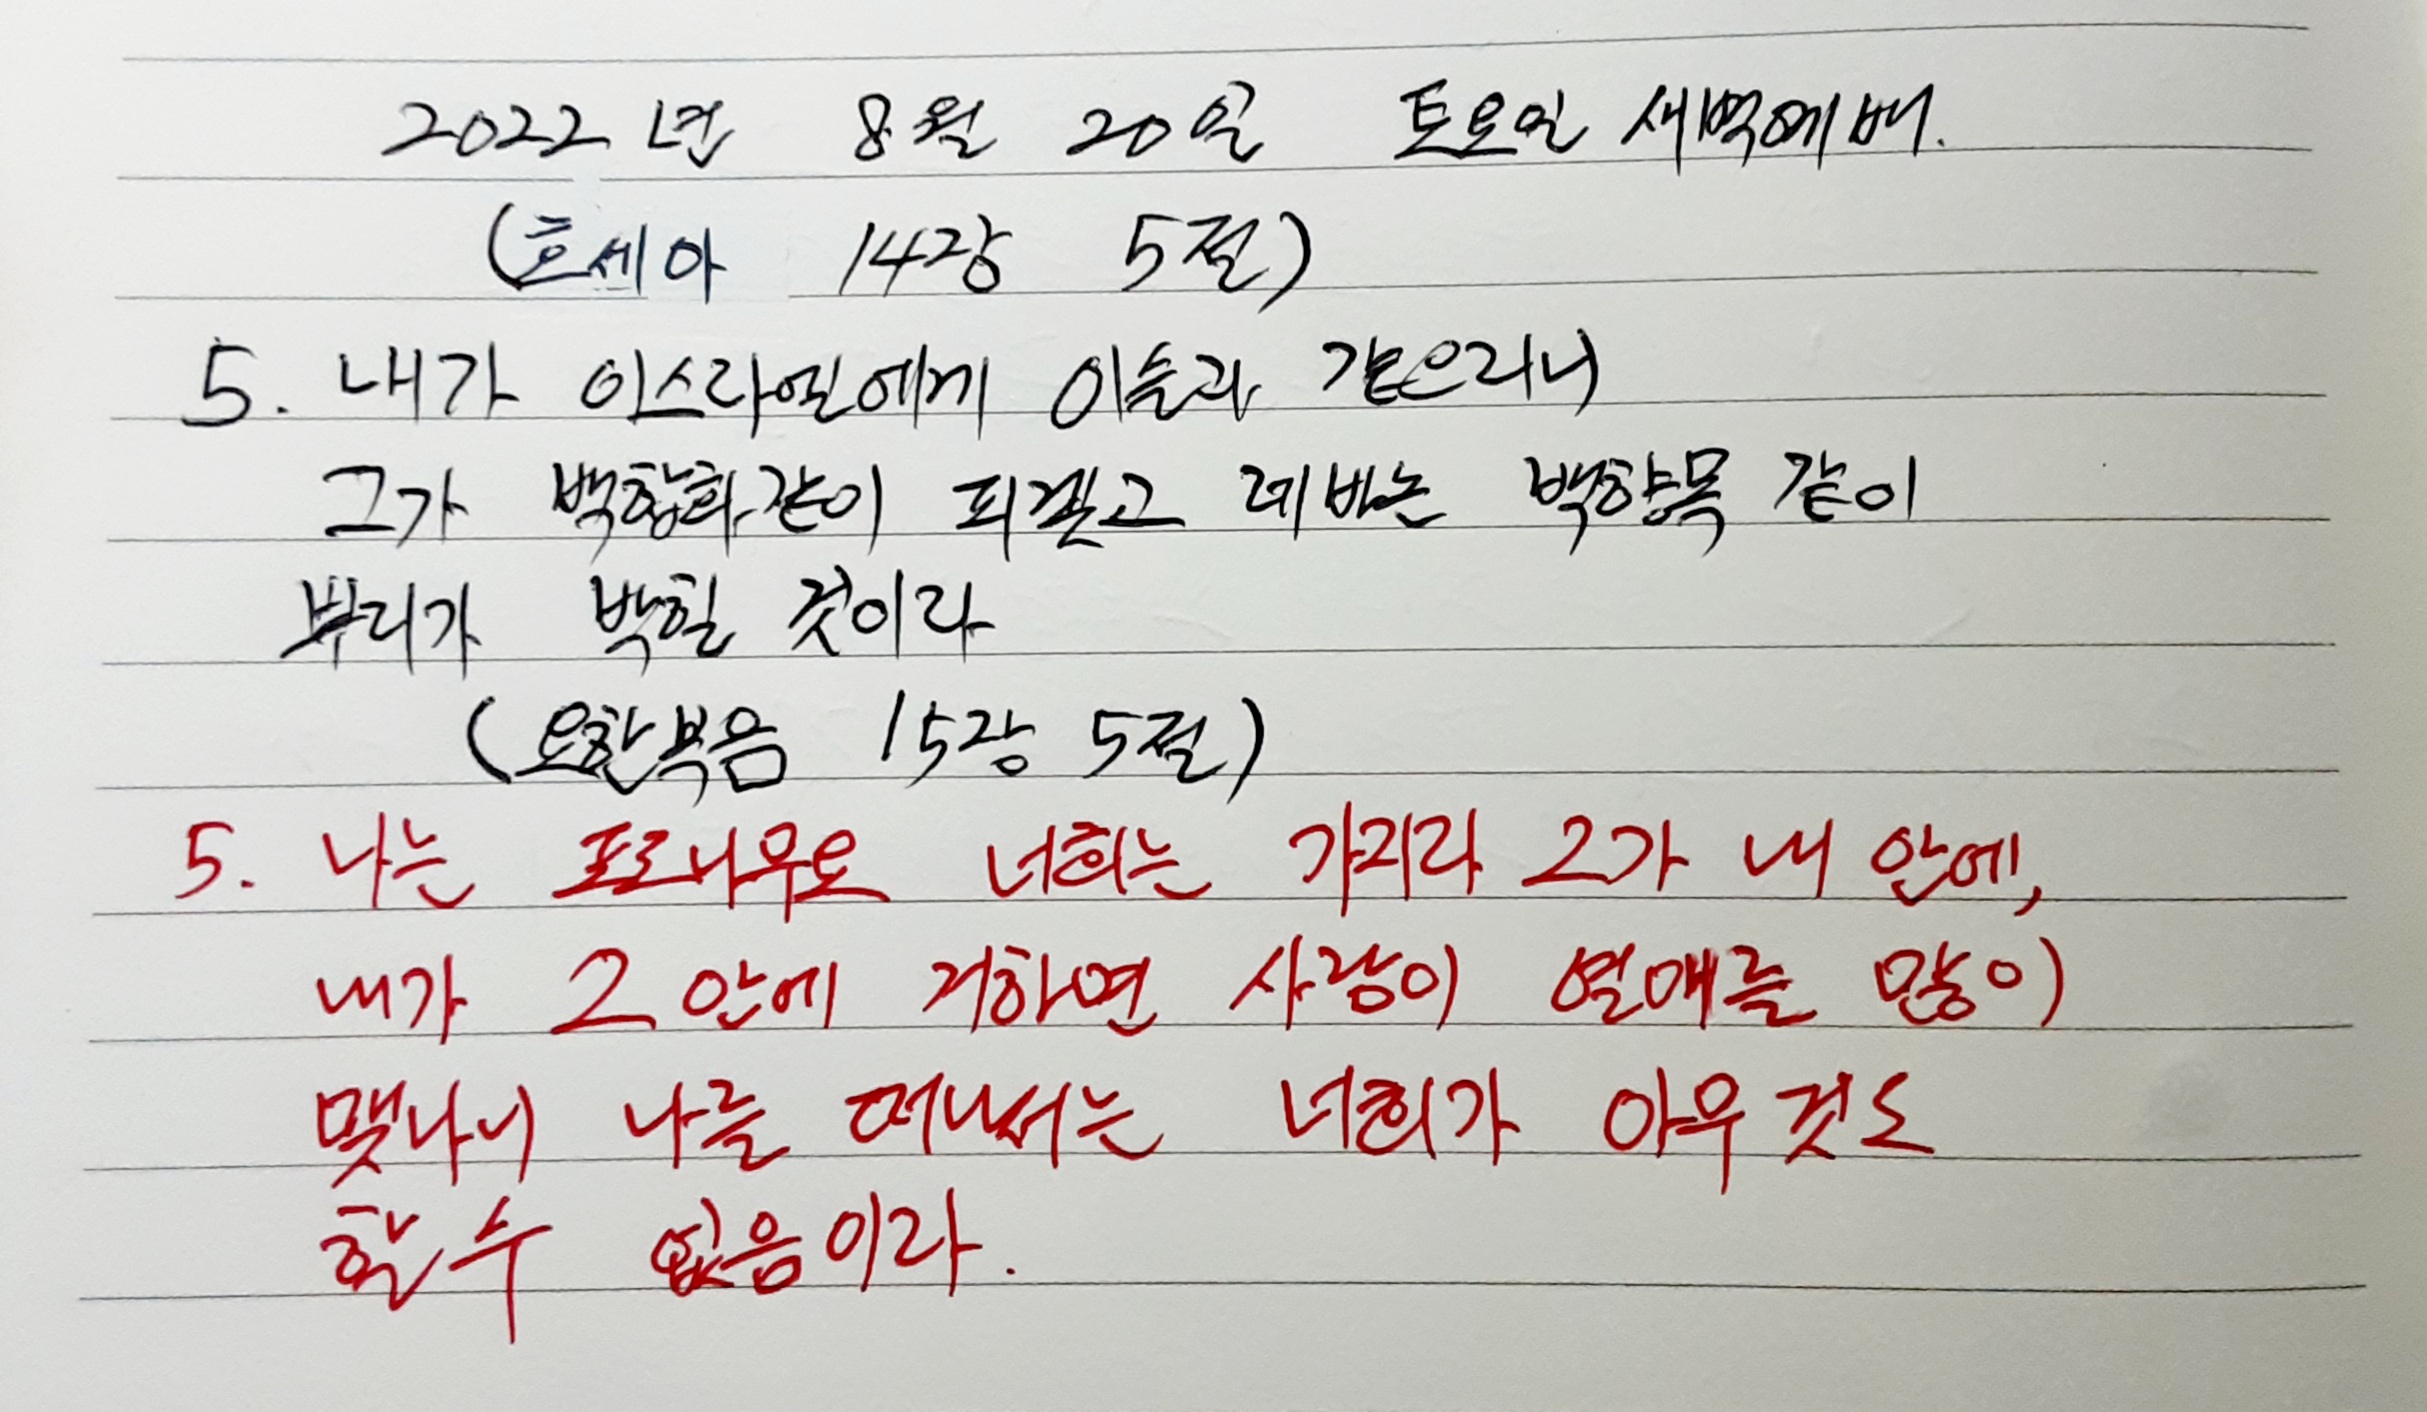 2022년 8월 20일 토요일 새벽예배.
(호세아 14장 5절)
5. 내가 이스라엘에게 이슬과 같으리니
그가 백합화같이 피겠고 레바논 백향목 같이
뿌리가 박힐 것이라
(요한복음 15장 5절)
5. 나는 포도나무요 너희는 가지라 그가 내 안에,
내가 그 안에 거하면 사람이 열매를 많이
맺나니 나를 떠나서는 너희가 아무 것도
할 수 없음이라.